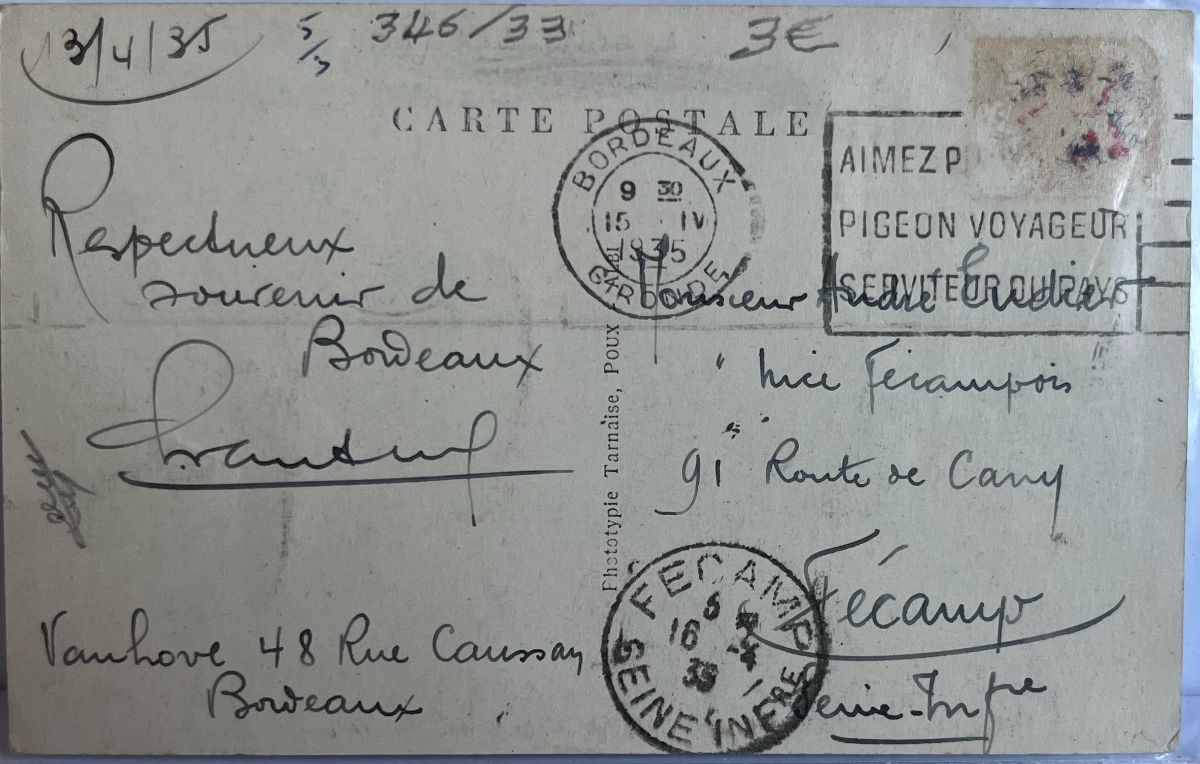 13/4/35
5/3
346/33
3€
CARTE POSTALE
BORDEAUX
9 30
15 IV
1935
GIRONDE
AIMEZ
PIGEON VOYAGEUR
SERVITEUR DU PAYS
Respectueux
souvenir de
Bordeaux
Vanhove 48 Rue Caussan
Bordeaux
Phototypie Tarnaise, POUX
Monsieur André
" Fécampois "
91 Route de Cany
Fécamp
Seine-Infre
FECAMP
16
35
SEINE INFRE